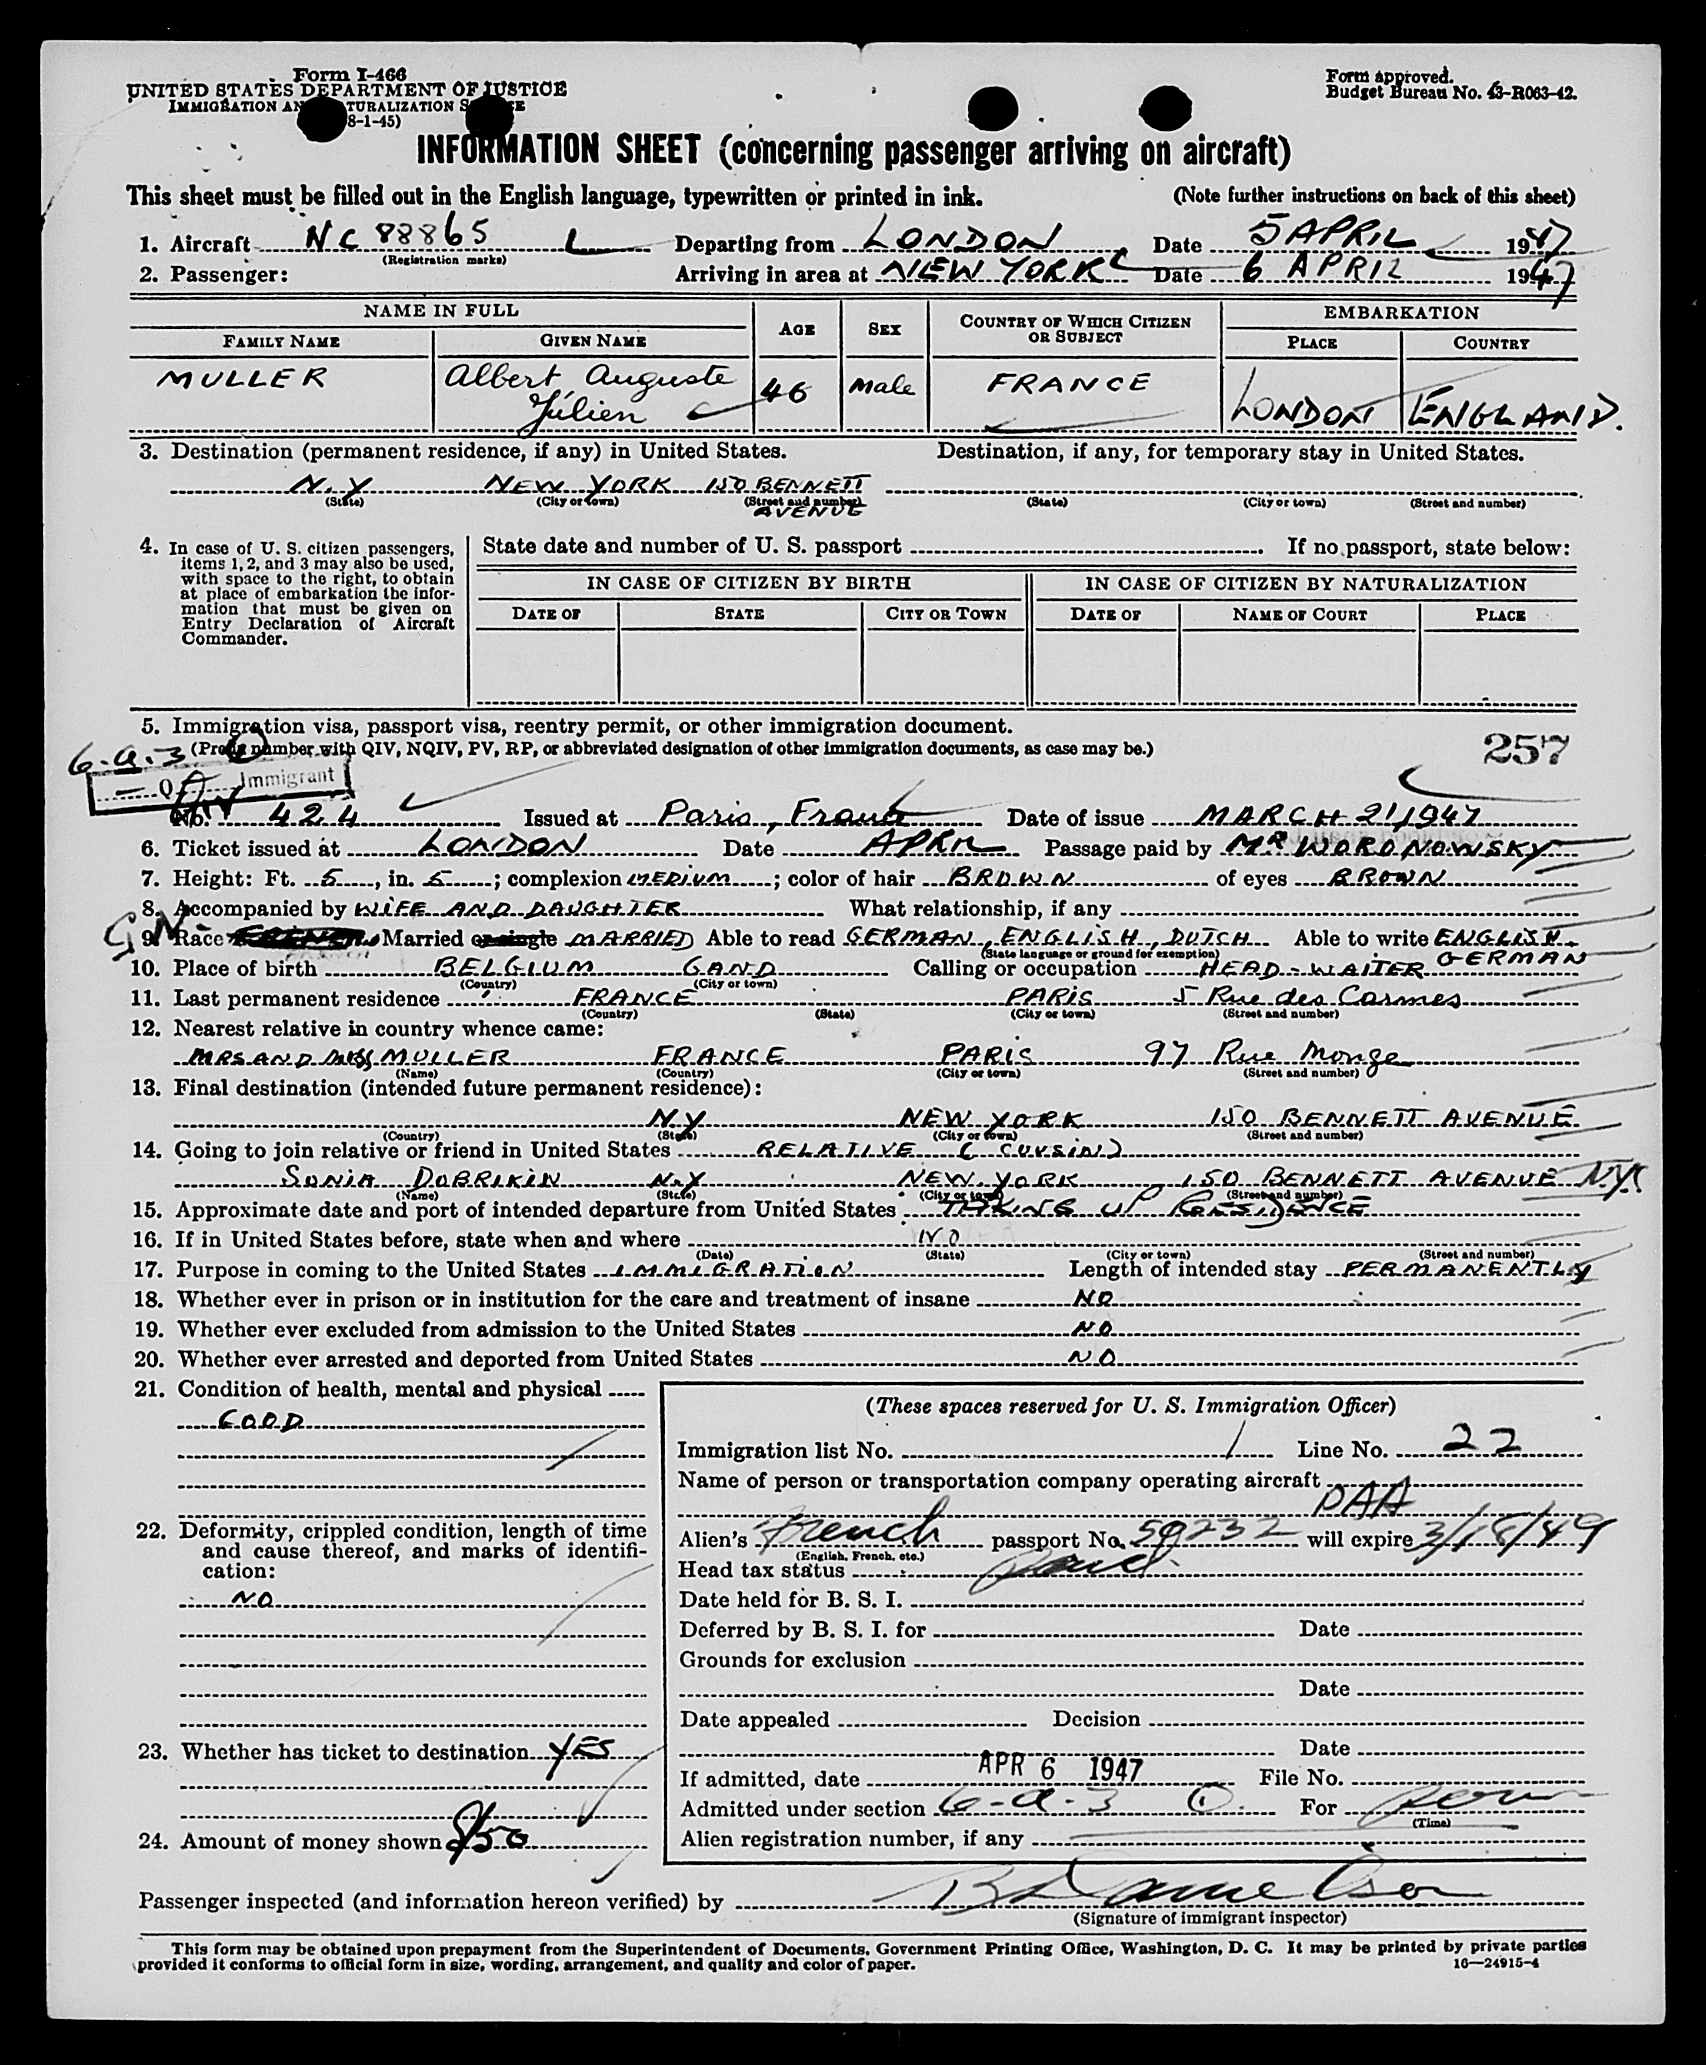 Form I-466
UNITED STATES DEPARTMENT OF JUSTICE
IMMIGRATION AND NATURALIZATION SERVICE
8-1-45)
Form approved.
Budget Bureau No. 43-R063-42.
INFORMATION SHEET (concerning passenger arriving on aircraft)
This sheet must be filled out in the English language, typewritten or printed in ink. (Note further instructions on back of this sheet)
1. Aircraft NC 88865 Departing from LONDON Date 5 APRIL 1947
(Registration marks)
2. Passenger: Arriving in area at NEW YORK Date 6 APRIL 1947
NAME IN FULL AGE SEX COUNTRY OF WHICH CITIZEN OR SUBJECT EMBARKATION
FAMILY NAME GIVEN NAME PLACE COUNTRY
MULLER Albert Auguste Julien 46 Male FRANCE LONDON ENGLAND.
3. Destination (permanent residence, if any) in United States. Destination, if any, for temporary stay in United States.
N.Y NEW YORK 150 BENNETT AVENUE
(State) (City or town) (Street and number) (State) (City or town) (Street and number)
4. In case of U. S. citizen passengers, items 1, 2, and 3 may also be used, with space to the right, to obtain at place of embarkation the information that must be given on Entry Declaration of Aircraft Commander.
State date and number of U. S. passport If no passport, state below:
IN CASE OF CITIZEN BY BIRTH IN CASE OF CITIZEN BY NATURALIZATION
DATE OF STATE CITY OR TOWN DATE OF NAME OF COURT PLACE
5. Immigration visa, passport visa, reentry permit, or other immigration document.
(Prefix number with QIV, NQIV, PV, RP, or abbreviated designation of other immigration documents, as case may be.)
6-a-3 257
Immigrant
No. 424 Issued at Paris, France Date of issue MARCH 21, 1947
6. Ticket issued at LONDON Date APRIL Passage paid by MR WORONOWSKY
7. Height: Ft. 5, in. 5; complexion MEDIUM; color of hair BROWN of eyes BROWN
8. Accompanied by WIFE AND DAUGHTER What relationship, if any
9. Race Married or single MARRIED Able to read GERMAN, ENGLISH, DUTCH Able to write ENGLISH. GERMAN
(State language or ground for exemption)
10. Place of birth BELGIUM GAND Calling or occupation HEAD-WAITER
(Country) (City or town)
11. Last permanent residence FRANCE PARIS 5 Rue des Carmes
(Country) (State) (City or town) (Street and number)
12. Nearest relative in country whence came:
MRS AND MISS MULLER FRANCE PARIS 97 Rue Monge
(Name) (Country) (City or town) (Street and number)
13. Final destination (intended future permanent residence):
N.Y NEW YORK 150 BENNETT AVENUE
(Country) (State) (City or town) (Street and number)
14. Going to join relative or friend in United States RELATIVE (COUSIN)
SONIA DOBRIKIN N.Y NEW YORK 150 BENNETT AVENUE N.Y.
(Name) (State) (City or town) (Street and number)
15. Approximate date and port of intended departure from United States TAKING UP RESIDENCE
16. If in United States before, state when and where NO
(Date) (State) (City or town) (Street and number)
17. Purpose in coming to the United States IMMIGRATION Length of intended stay PERMANENTLY
18. Whether ever in prison or in institution for the care and treatment of insane NO
19. Whether ever excluded from admission to the United States NO
20. Whether ever arrested and deported from United States NO
21. Condition of health, mental and physical
GOOD
22. Deformity, crippled condition, length of time and cause thereof, and marks of identification:
NO
23. Whether has ticket to destination YES
24. Amount of money shown $50
(These spaces reserved for U. S. Immigration Officer)
Immigration list No. 1 Line No. 22
Name of person or transportation company operating aircraft
PAA
Alien's French passport No. 59232 will expire 3/18/49
(English, French, etc.)
Head tax status
Date held for B. S. I.
Deferred by B. S. I. for Date
Grounds for exclusion
Date
Date appealed Decision
Date
If admitted, date APR 6 1947 File No.
Admitted under section 6-a-3 For
(Time)
Alien registration number, if any
Passenger inspected (and information hereon verified) by
(Signature of immigrant inspector)
This form may be obtained upon prepayment from the Superintendent of Documents, Government Printing Office, Washington, D. C. It may be printed by private parties
provided it conforms to official form in size, wording, arrangement, and quality and color of paper. 16—24915-4